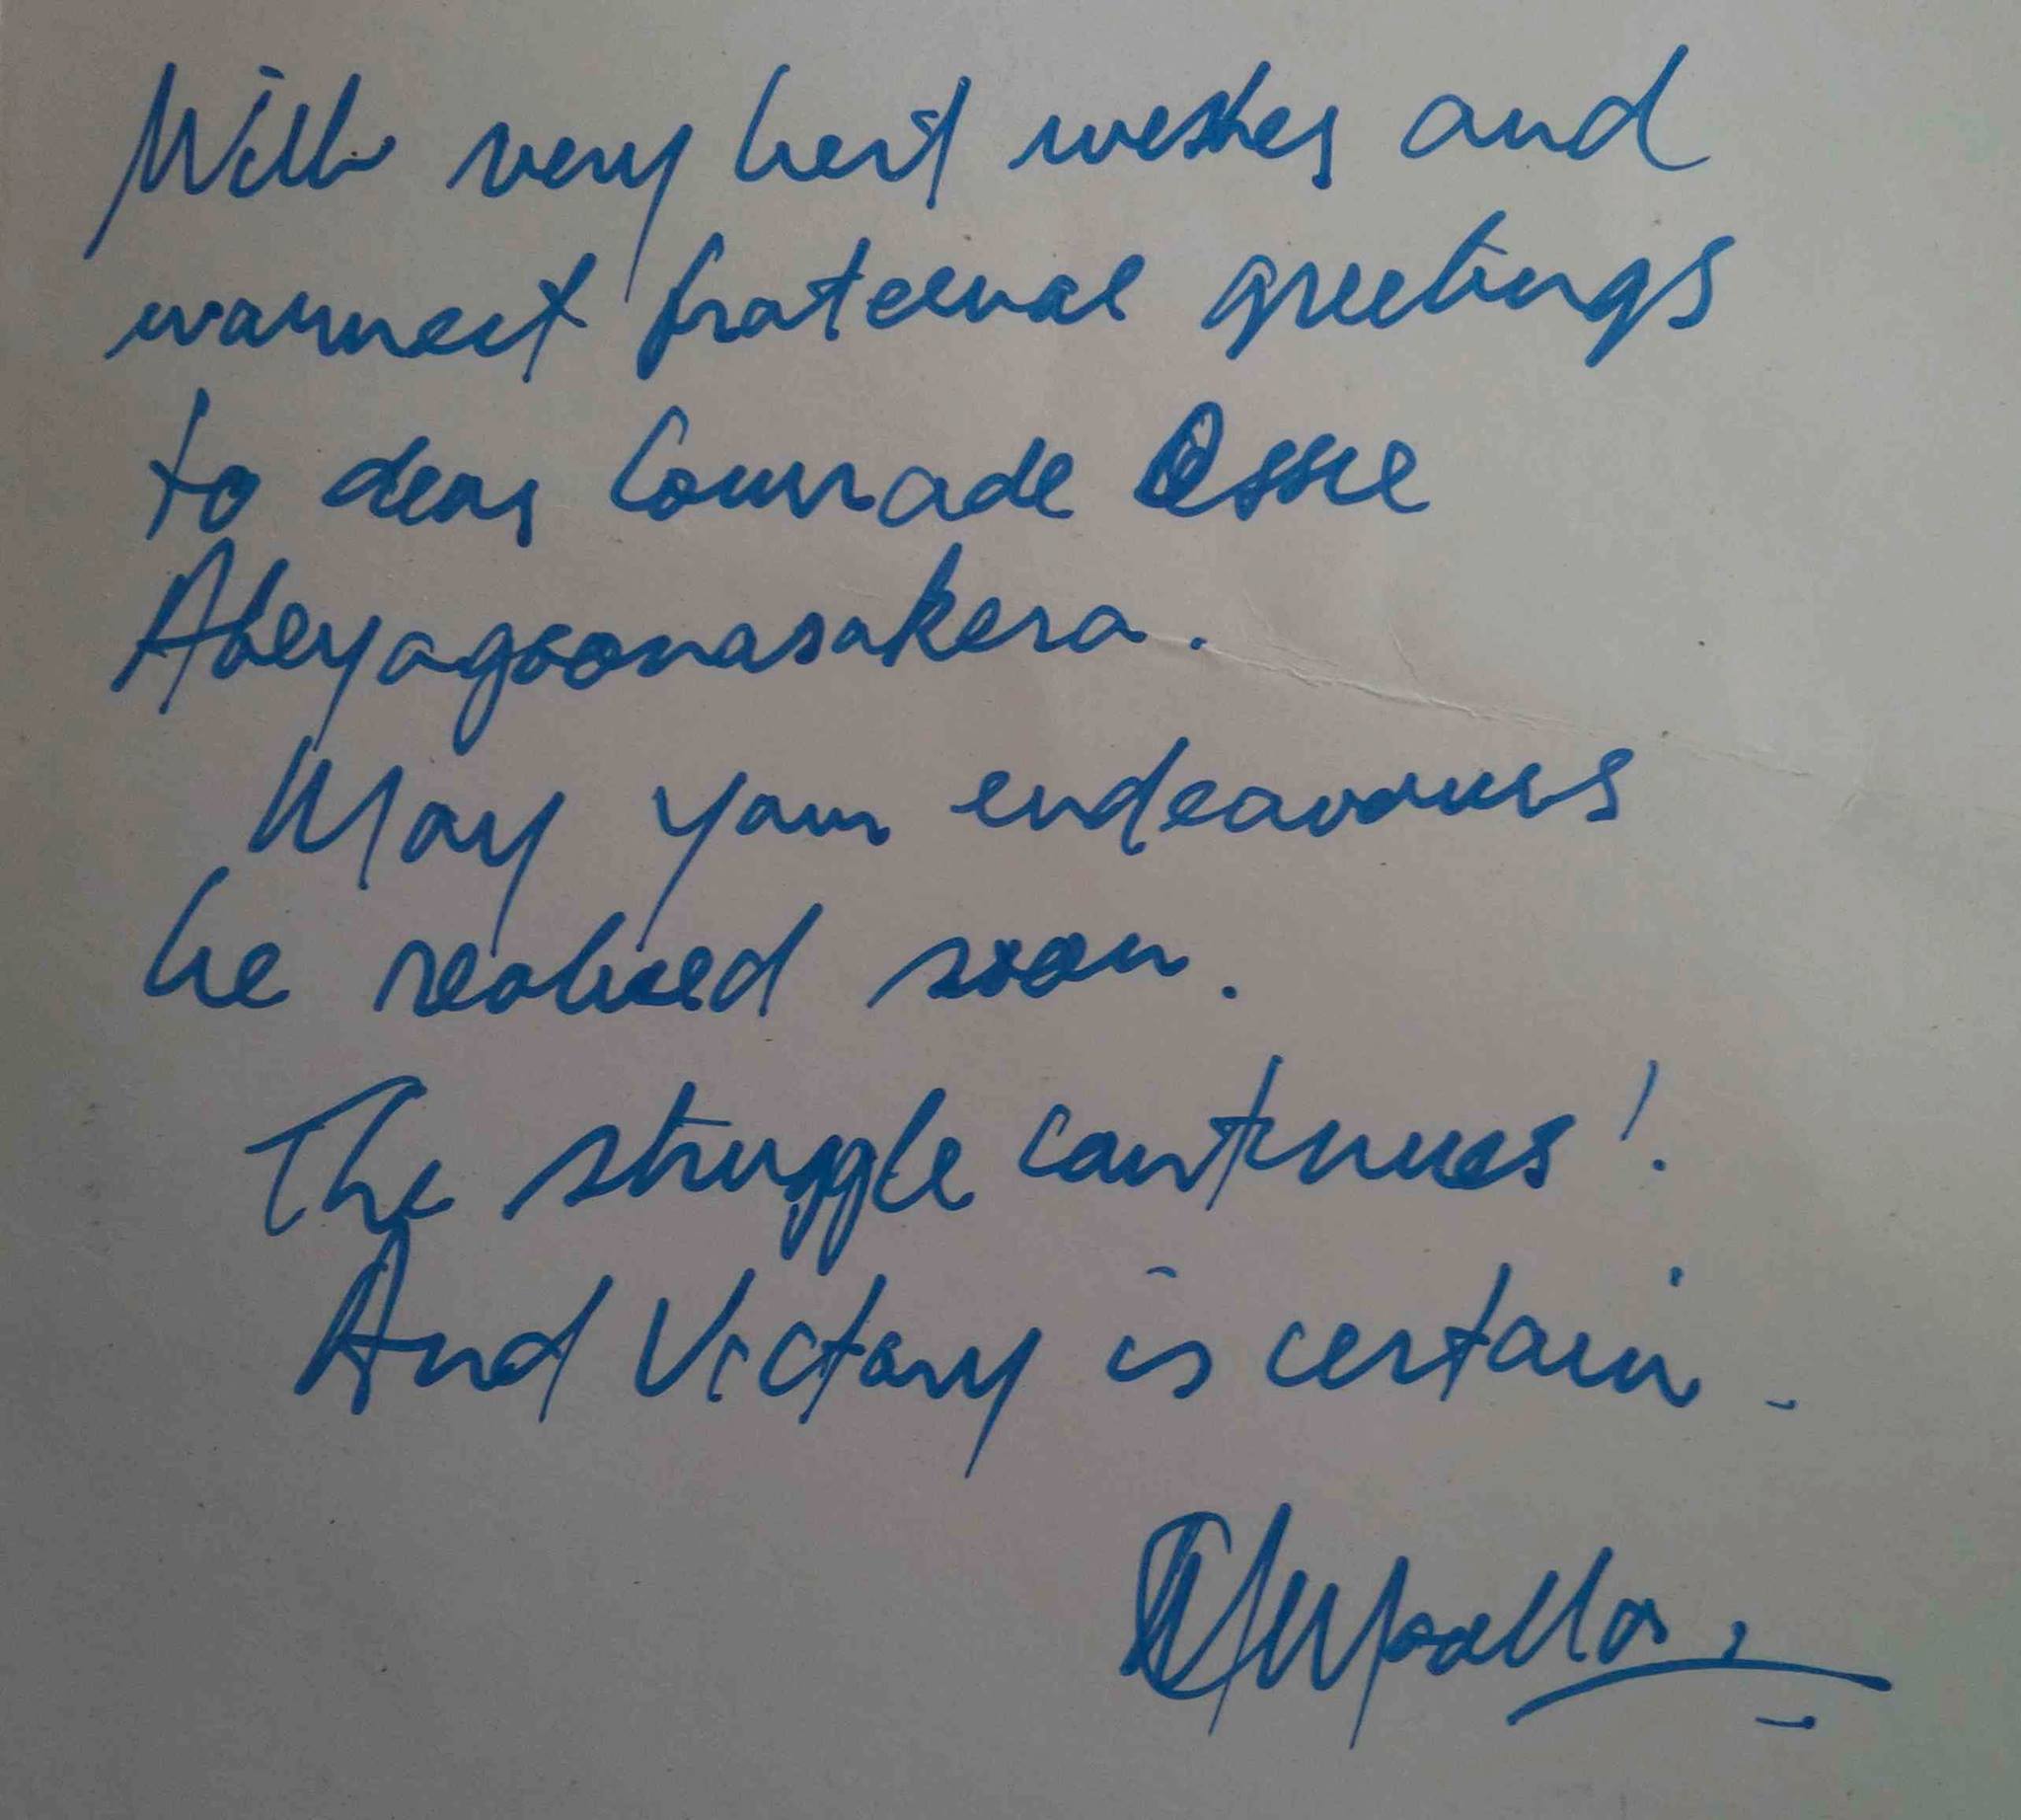 With very best wishes and
warmest fraternal greetings
to dear Comrade Ossie
Abeyagoonasakera.
May your endeavours
be realised soon.
The struggle continues!
And Victory is certain.